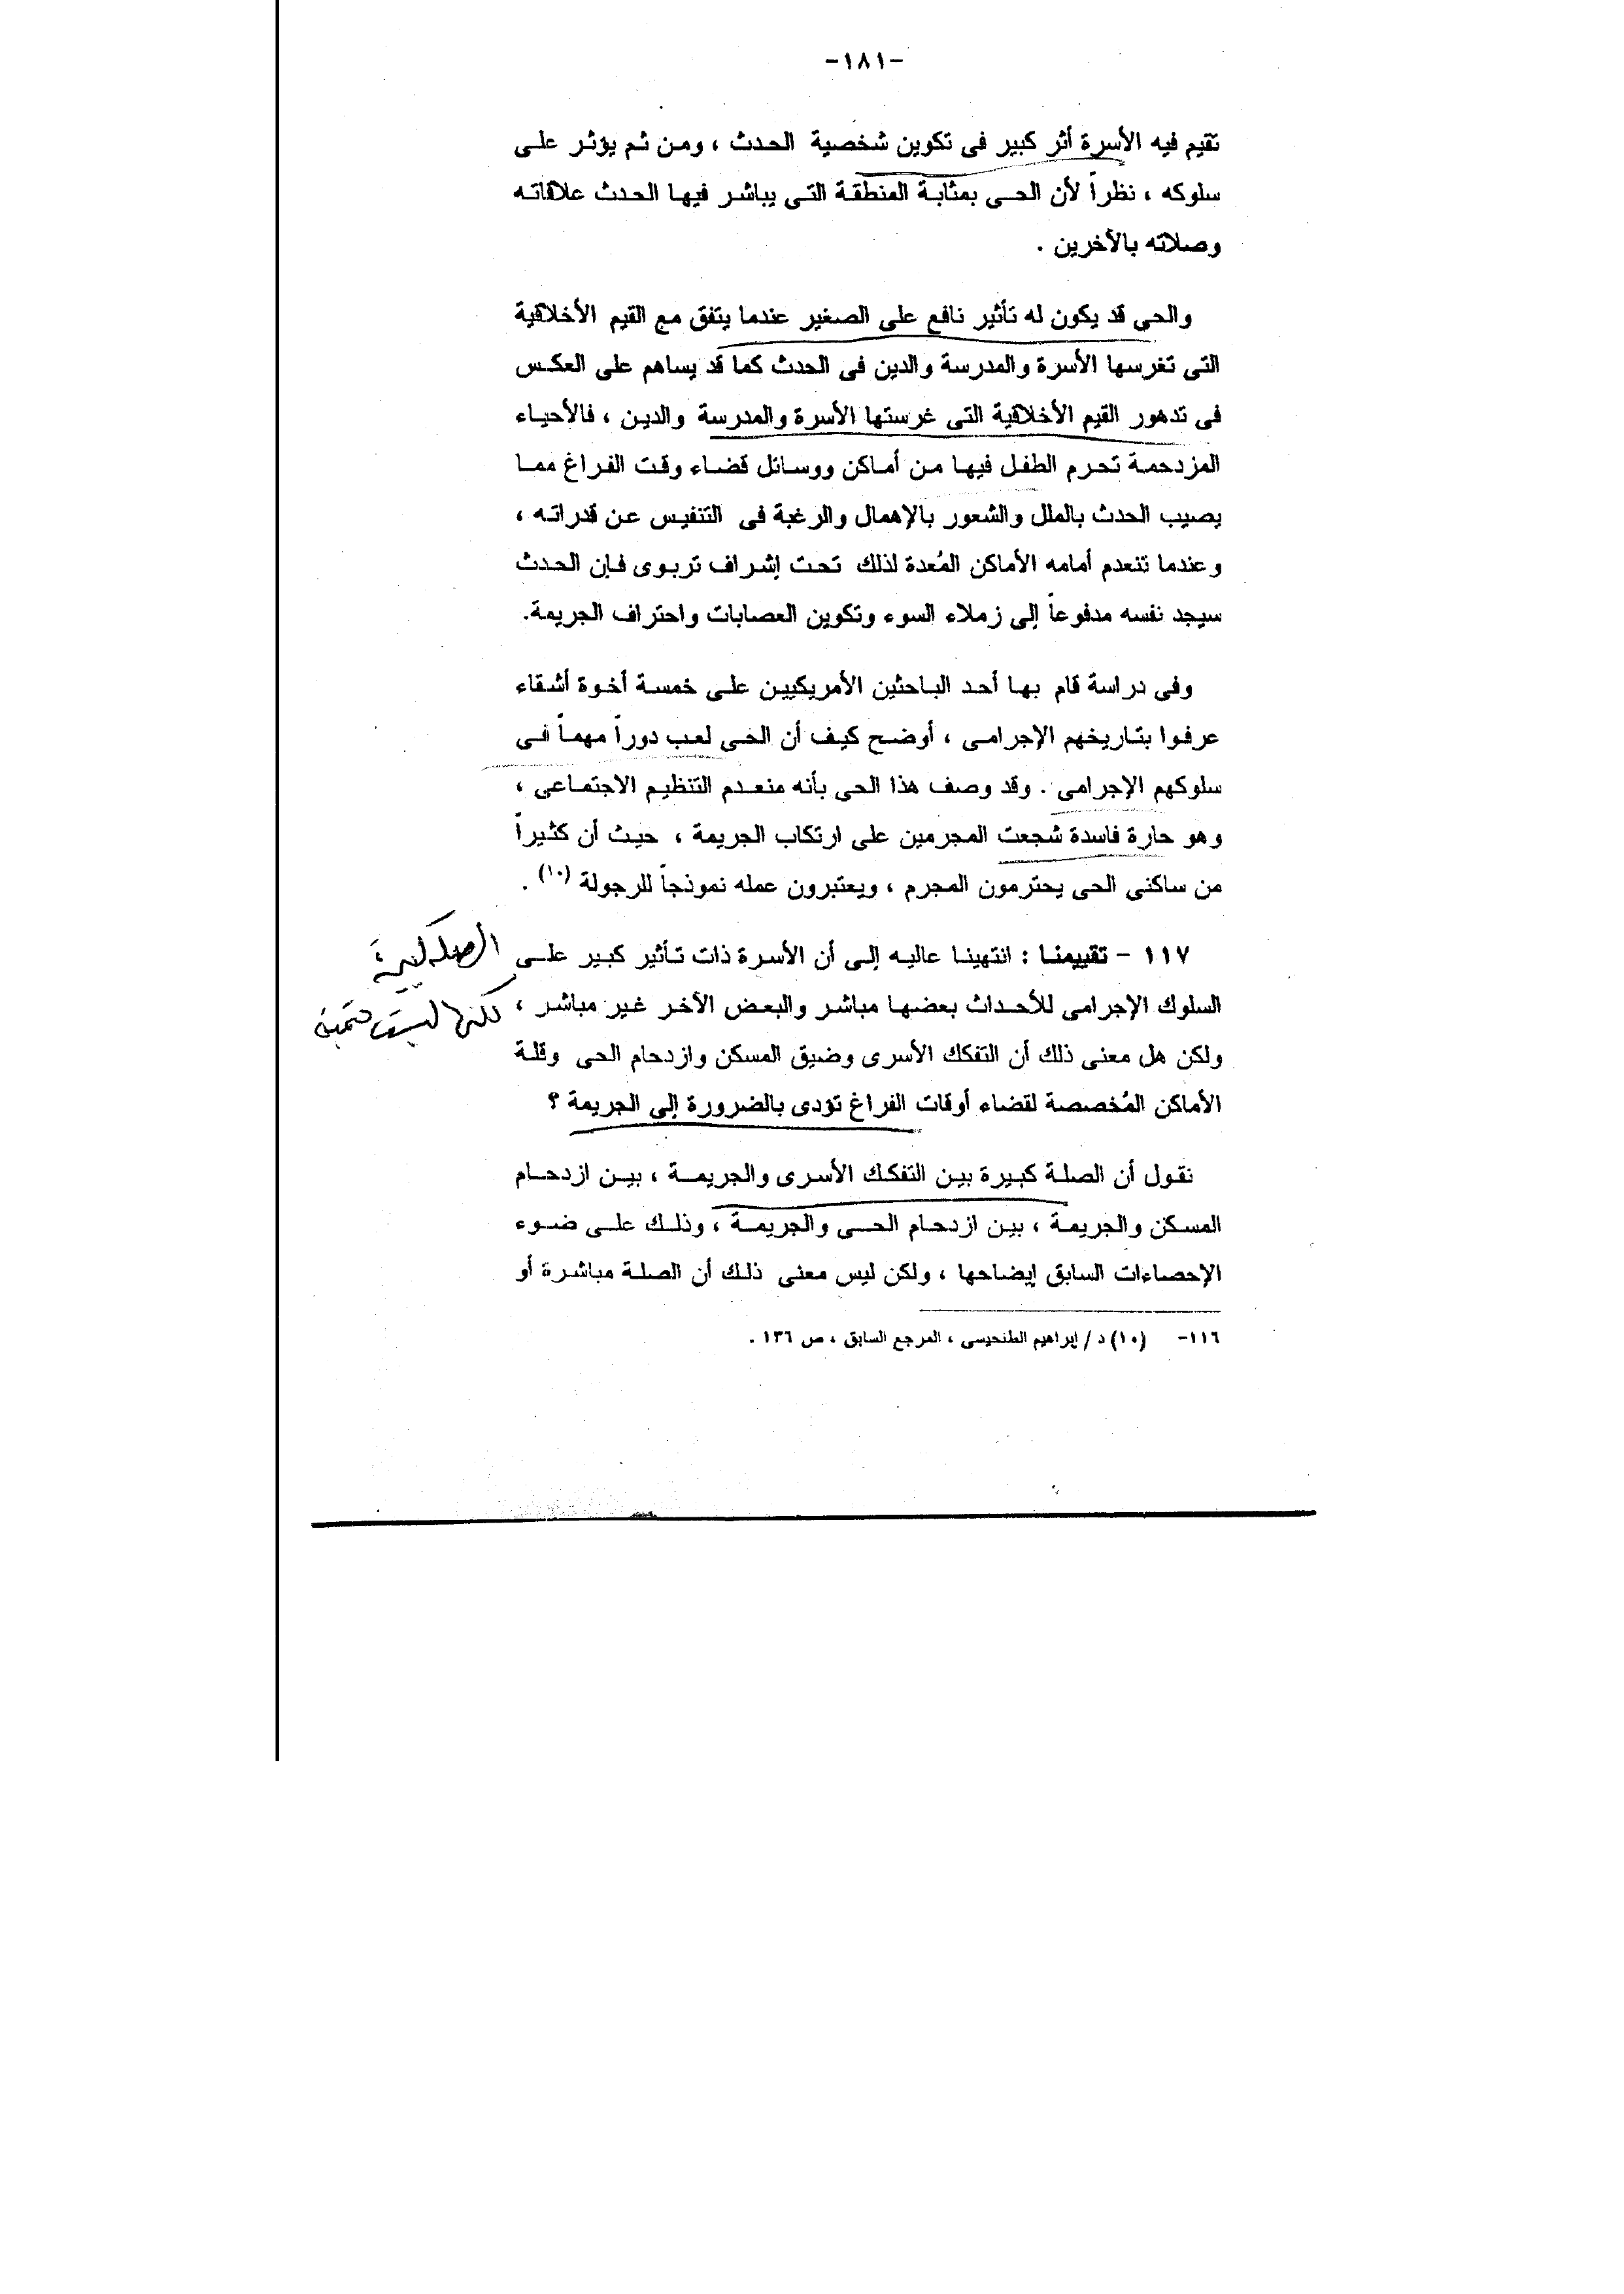 -١٨١-
تقيم فيه الأسرة أثر كبير فى تكوين شخصية الحدث ، ومن ثم يؤثر على
سلوكه ، نظراً لأن الحى بمثابة المنطقة التى يباشر فيها الحدث علاقاته
وصلاته بالأخرين .
والحى قد يكون له تأثير نافع على الصغير عندما يتفق مع القيم الأخلاقية
التى تغرسها الأسرة والمدرسة والدين فى الحدث كما قد يساهم على العكس
فى تدهور القيم الأخلاقية التى غرستها الأسرة والمدرسة والدين ، فالأحياء
المزدحمة تحرم الطفل فيها من أماكن ووسائل قضاء وقت الفراغ مما
يصيب الحدث بالملل والشعور بالإهمال والرغبة فى التنفيس عن قدراته ،
وعندما تنعدم أمامه الأماكن المُعدة لذلك تحت إشراف تربوى فإن الحدث
سيجد نفسه مدفوعاً إلى زملاء السوء وتكوين العصابات واحتراف الجريمة.
وفى دراسة قام بها أحد الباحثين الأمريكيين على خمسة أخوة أشقاء
عرفوا بتاريخهم الإجرامى ، أوضح كيف أن الحى لعب دوراً مهماً فى
سلوكهم الإجرامى . وقد وصف هذا الحى بأنه منعدم التنظيم الاجتماعى ،
وهو حارة فاسدة شجعت المجرمين على ارتكاب الجريمة ، حيث أن كثيراً
من ساكنى الحى يحترمون المجرم ، ويعتبرون عمله نموذجاً للرجولة (١٠) .
١١٧ - تقييمنا : انتهينا عاليه إلى أن الأسرة ذات تأثير كبير على
السلوك الإجرامى للأحداث بعضها مباشر والبعض الآخر غير مباشر ،
ولكن هل معنى ذلك أن التفكك الأسرى وضيق المسكن وازدحام الحى وقلة
الأماكن المُخصصة لقضاء أوقات الفراغ تؤدى بالضرورة إلى الجريمة ؟
الصلة كبيرة
لكنها ليست حتمية
نقول أن الصلة كبيرة بين التفكك الأسرى والجريمة ، بين ازدحام
المسكن والجريمة ، بين ازدحام الحى والجريمة ، وذلك على ضوء
الإحصاءات السابق إيضاحها ، ولكن ليس معنى ذلك أن الصلة مباشرة أو
١١٦- (١٠) د / إبراهيم الطنحيسى ، المرجع السابق ، ص ١٣٦ .